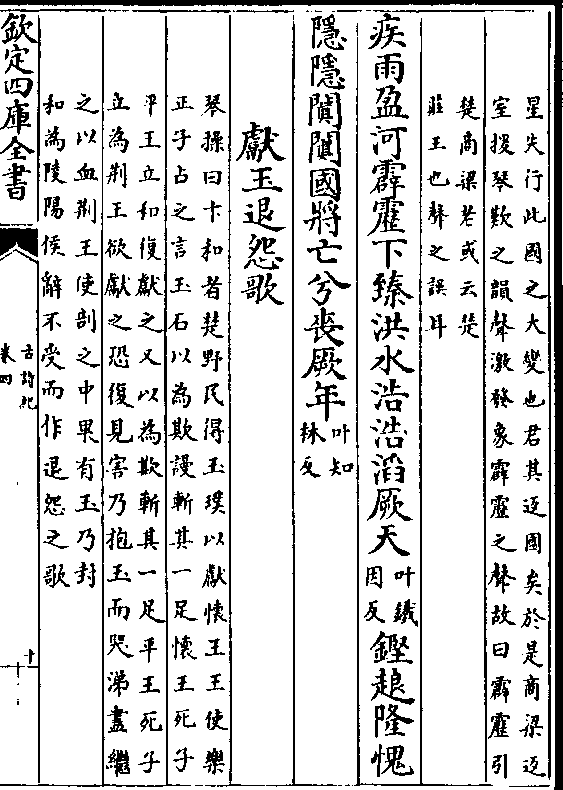 星失行此國之大變也君其返國矣於是商梁返
室援琴歎之韻聲激發象霹靂之聲故曰霹靂引
楚商梁者或云楚
莊王也聲之誤耳
疾雨盈河霹靂下臻洪水浩浩滔厥天叶鐵因反鏗隆愧
隱隱闐闐國將亡兮喪厥年叶知林反
獻玉退怨歌
琴操曰卞和者楚野民得玉璞以獻懷王王使樂
正子占之言玉石以為欺謾斬其一足懷王死子
平王立和復獻之又以為欺斬其一足平王死子
立為荆王欲獻之恐復見害乃抱玉而哭涕盡繼
之以血荆王使剖之中果有玉乃封
和為陵陽侯辭不受而作退怨之歌
欽定四庫全書
古詩紀
卷四
十